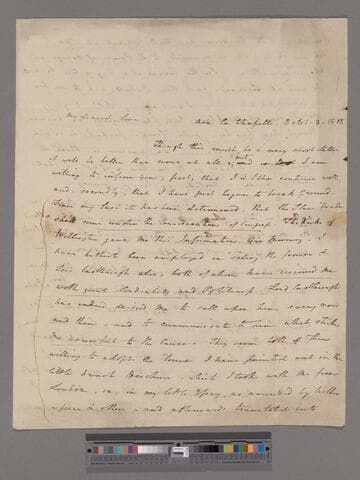 My dearest Love
Aix la Chapelle, Octbr. 3. 1818
Though this must be a very short letter
it will be better than none at all, and I am
willing to inform you, first, that I continue well
and, secondly, that I have just begun to break ground.
Since my last it has been determined that the Slave Trade
shall come under the Consideration of Congress. The Duke of
Wellington gave me this Information this Morning. I
have hitherto been employed in seeing the former &
Lord Castlereagh also, both of whom have received me
with great Cordiality and Politeness. Lord Castlereagh
has indeed desired me to call upon him every now
and then, and to communicate to him what strikes
me as useful to the Cause. They seem both of them
willing to adopt the Course I have pointed out in the
little French Brochure, which I took with me from
London, in my little Essay, as amended by
and others, and afterwards translated into